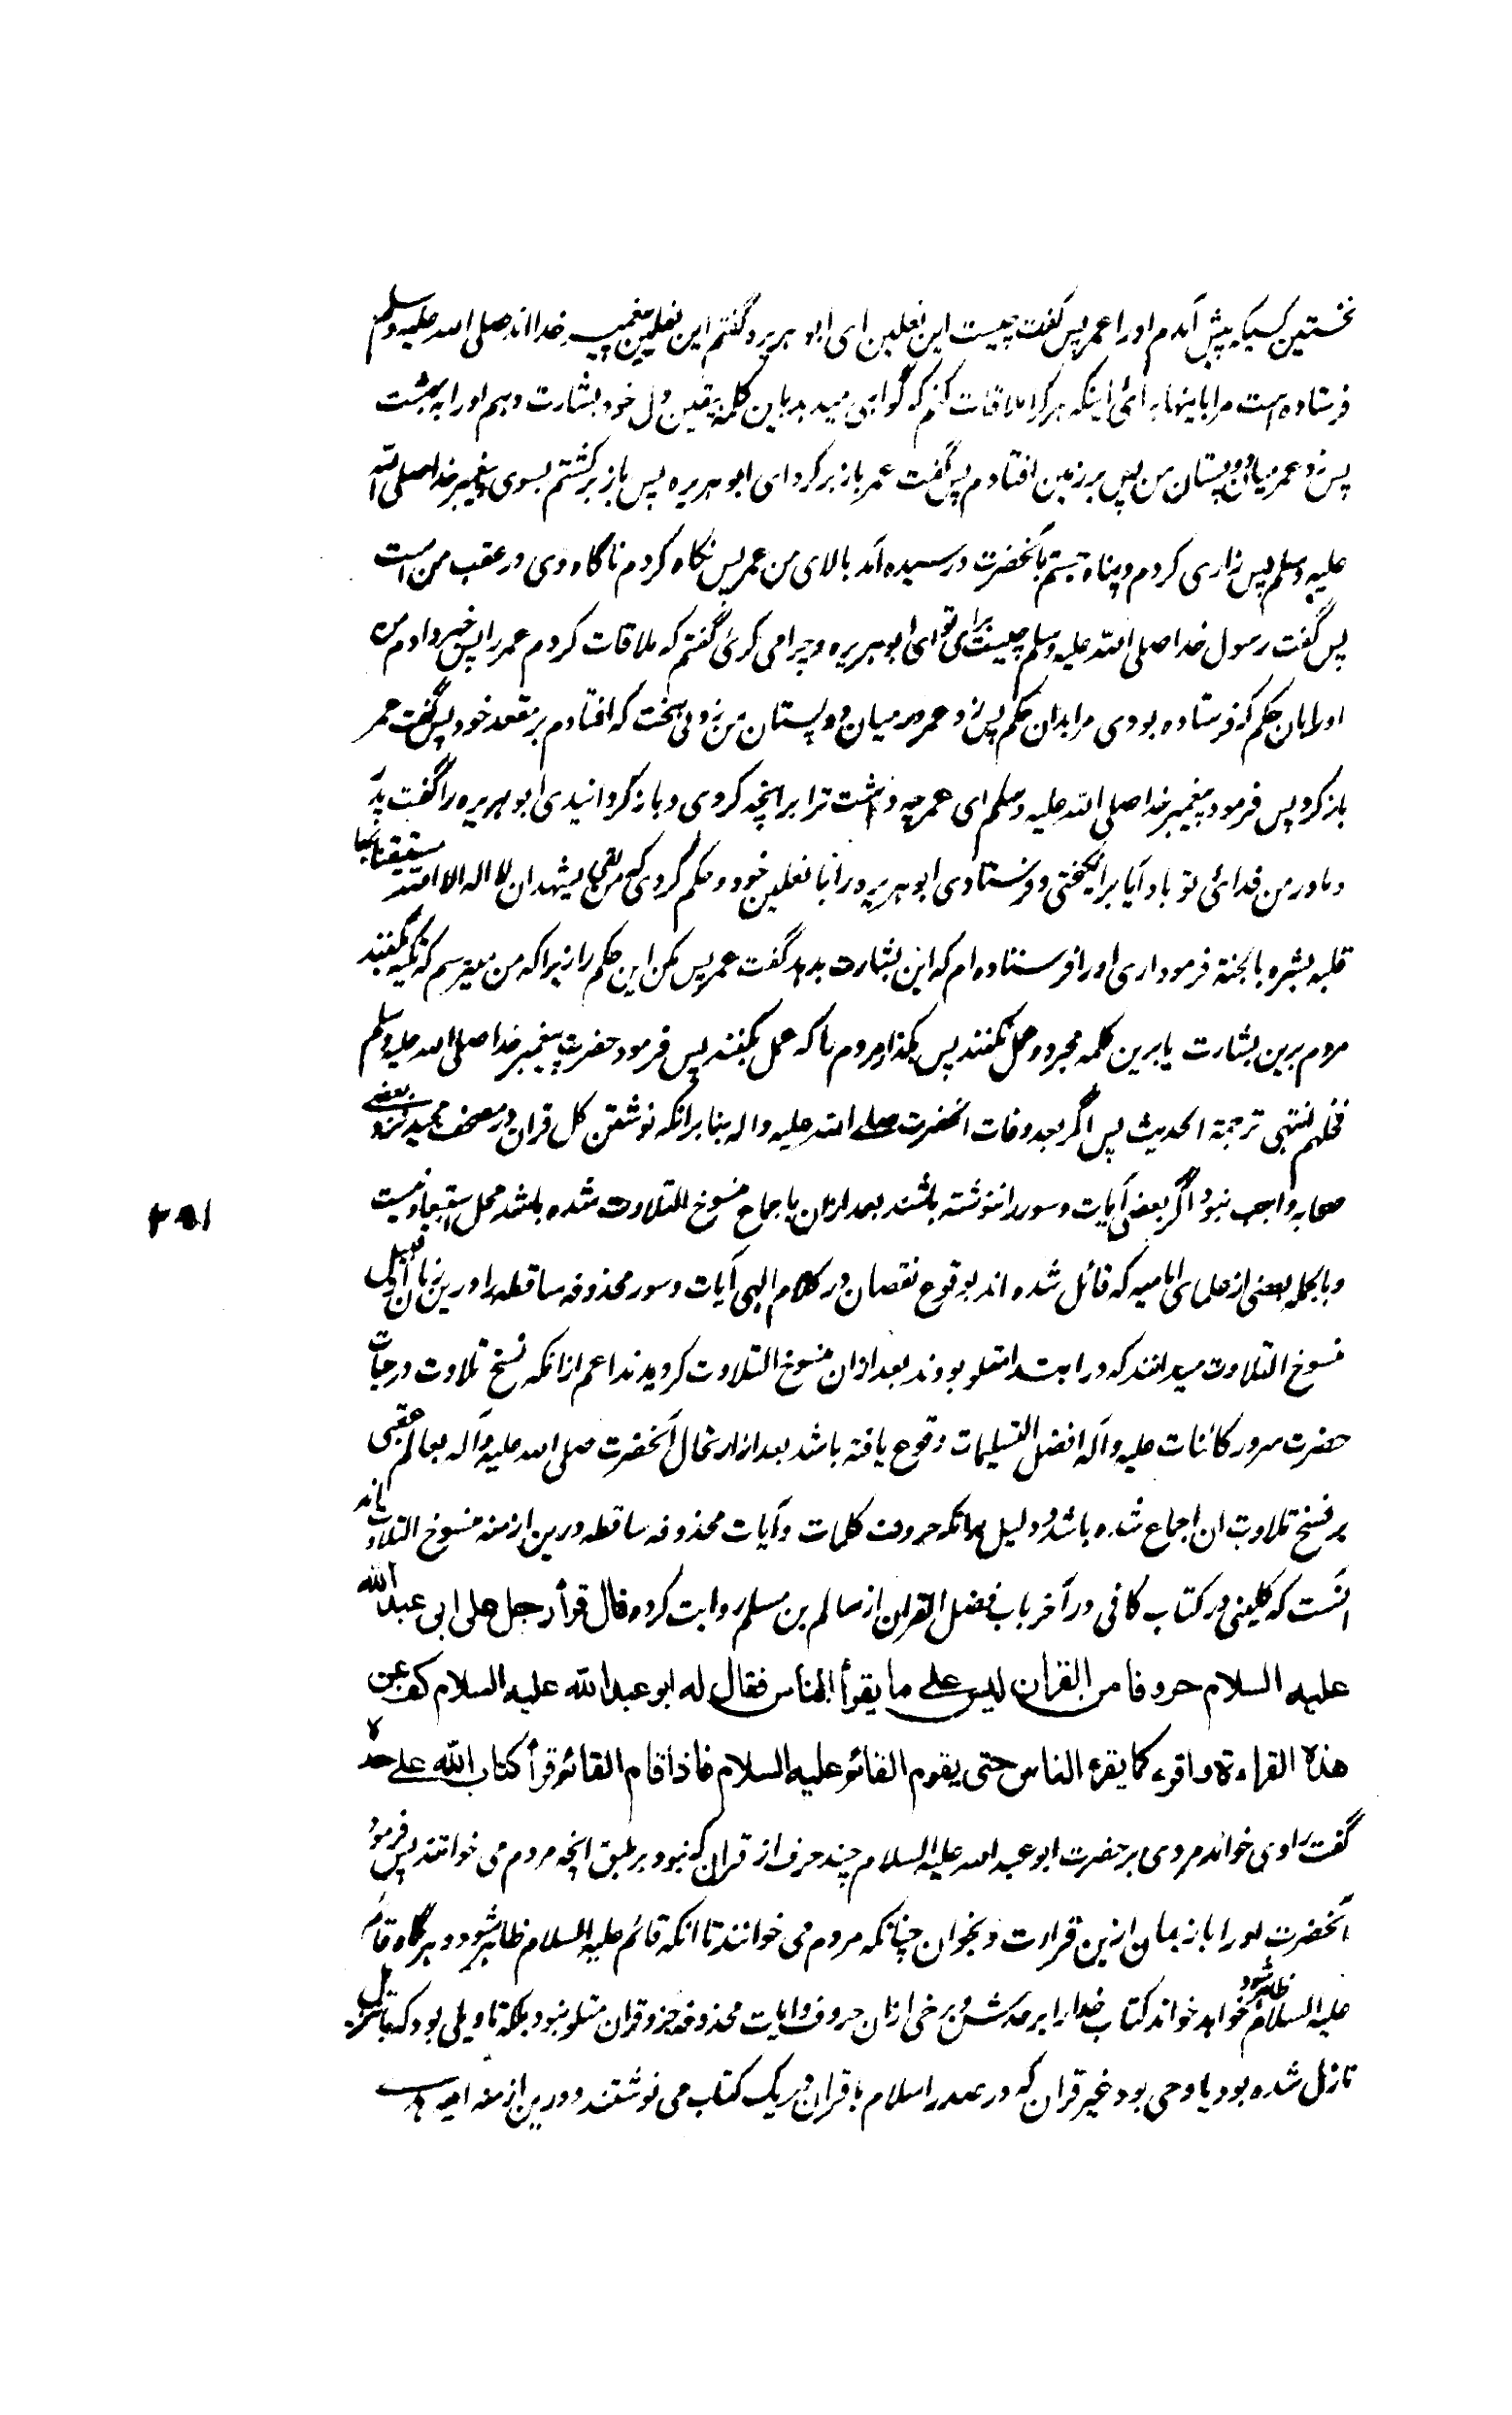 نخستین کسیکه پیش آمدم اورا عمر پس گفت چیست این نعلین ای ابو هریره گفتم این نعلین پیغمبر خدا اند صلی الله علیه وسلم
فرستاده است مرا باینها برائی اینکه هر کرا ملاقات کنم که گواهی میدهد باین کلمه بیقین دل خود بشارت دهم اورا به بهشت
پس زد عمر میان دو پستان من پس بر زمین افتادم پس گفت عمر باز برگرد ای ابو هریره پس باز برگشتم بسوی پیغمبر خدا صلی الله
علیه وسلم پس زاری کردم و پناه جستم بآنحضرت و رسیده آمد بالای من عمر پس نگاه کردم ناگاه وی در عقب من است
پس گفت رسول خدا صلی الله علیه وسلم چیست برای تو ای ابو هریره و چرا می گرئی گفتم که ملاقات کردم عمر را پس خبر دادم من
اورا بان حکم که فرستاده بودی مرا بدان حکم پس زد عمر در میان دو پستان من زدنی سخت که افتادم بر مقعد خود پس گفت عمر
باز گرد پس فرمود پیغمبر خدا صلی الله علیه وسلم ای عمر چه داشت ترا برانچه کردی و باز گردانیدی ابو هریره را گفت پدر
و مادر من فدائی تو باد آیا برانگیختی و فرستادی ابو هریره را با نعلین خود و حکم کردی که من لقی یشهد ان لا اله الا الله مستیقنا بها
قلبه بشره بالجنة فرمود اری اورا فرستاده ام که این بشارت بدهد گفت عمر پس مکن این حکم را زیرا که من میترسم که تکیه کنند
مردم برین بشارت یا برین کلمه مجرد و عمل نکنند پس بگذار مردم را که عمل بکنند پس فرمود حضرت پیغمبر خدا صلی الله علیه وسلم
فخلهم انتهی ترجمة الحدیث پس اگر بعد وفات انحضرت صلی الله علیه واله بنا برانکه نوشتن کل قران در مصحف مجید نزد بعضی
صحابه واجب نبود اگر بعضی آیات و سور را ننوشته باشند بعد ازان باجماع منسوخ التلاوت شده باشد محل استبعاد نیست
۲۵۱
و بالجمله بعضی از علمای امامیه که قائل شده اند بوقوع نقصان در کلام الهی آیات و سور محذوفه ساقطه را درین زمان از قبیل
منسوخ التلاوت میدانند که در ابتدا متلو بودند بعد ازان منسوخ التلاوت گردیدند اعم ازانکه نسخ تلاوت در حیات
حضرت سرور کائنات علیه وآله افضل التسلیمات وقوع یافته باشد بعد از ارتحال آنحضرت صلی الله علیه وآله بعالم عقبی
بر نسخ تلاوت ان اجماع شده باشد و دلیل برانکه حروف کلمات و آیات محذوفه ساقطه درین ازمنه منسوخ التلاوت اند
انست که کلینی در کتاب کافی در آخر باب فضل القران از سالم بن مسلم روایت کرده قال قرأ رجل علی ابی عبد الله
علیه السلام حروفا من القران لیس علی ما یقرأ الناس فقال له ابو عبد الله علیه السلام کف عن
هذه القراءة واقرء کما یقرء الناس حتی یقوم القائم علیه السلام فاذا قام القائم قرأ کتاب الله علی حده
گفت راوی خواند مردی بر حضرت ابو عبد الله علیه السلام چند حرف از قران که نبود بر طبق انچه مردم می خوانند پس فرمود
آنحضرت اورا باز بمان ازین قراءت و بخوان چنانکه مردم می خوانند تا انکه قائم علیه السلام ظاهر شود و هرگاه قائم
علیه السلام ظاهر شود بخواهد خواند کتاب خدا را بر حدش و برخی ازان حروف و ایات محذوفه جزو قران متلو نبود بلکه تاویلی بود که با تنزیل
نازل شده بود یا وحی بود غیر قران که در صدر اسلام با قران در یک کتاب می نوشتند و درین ازمنه